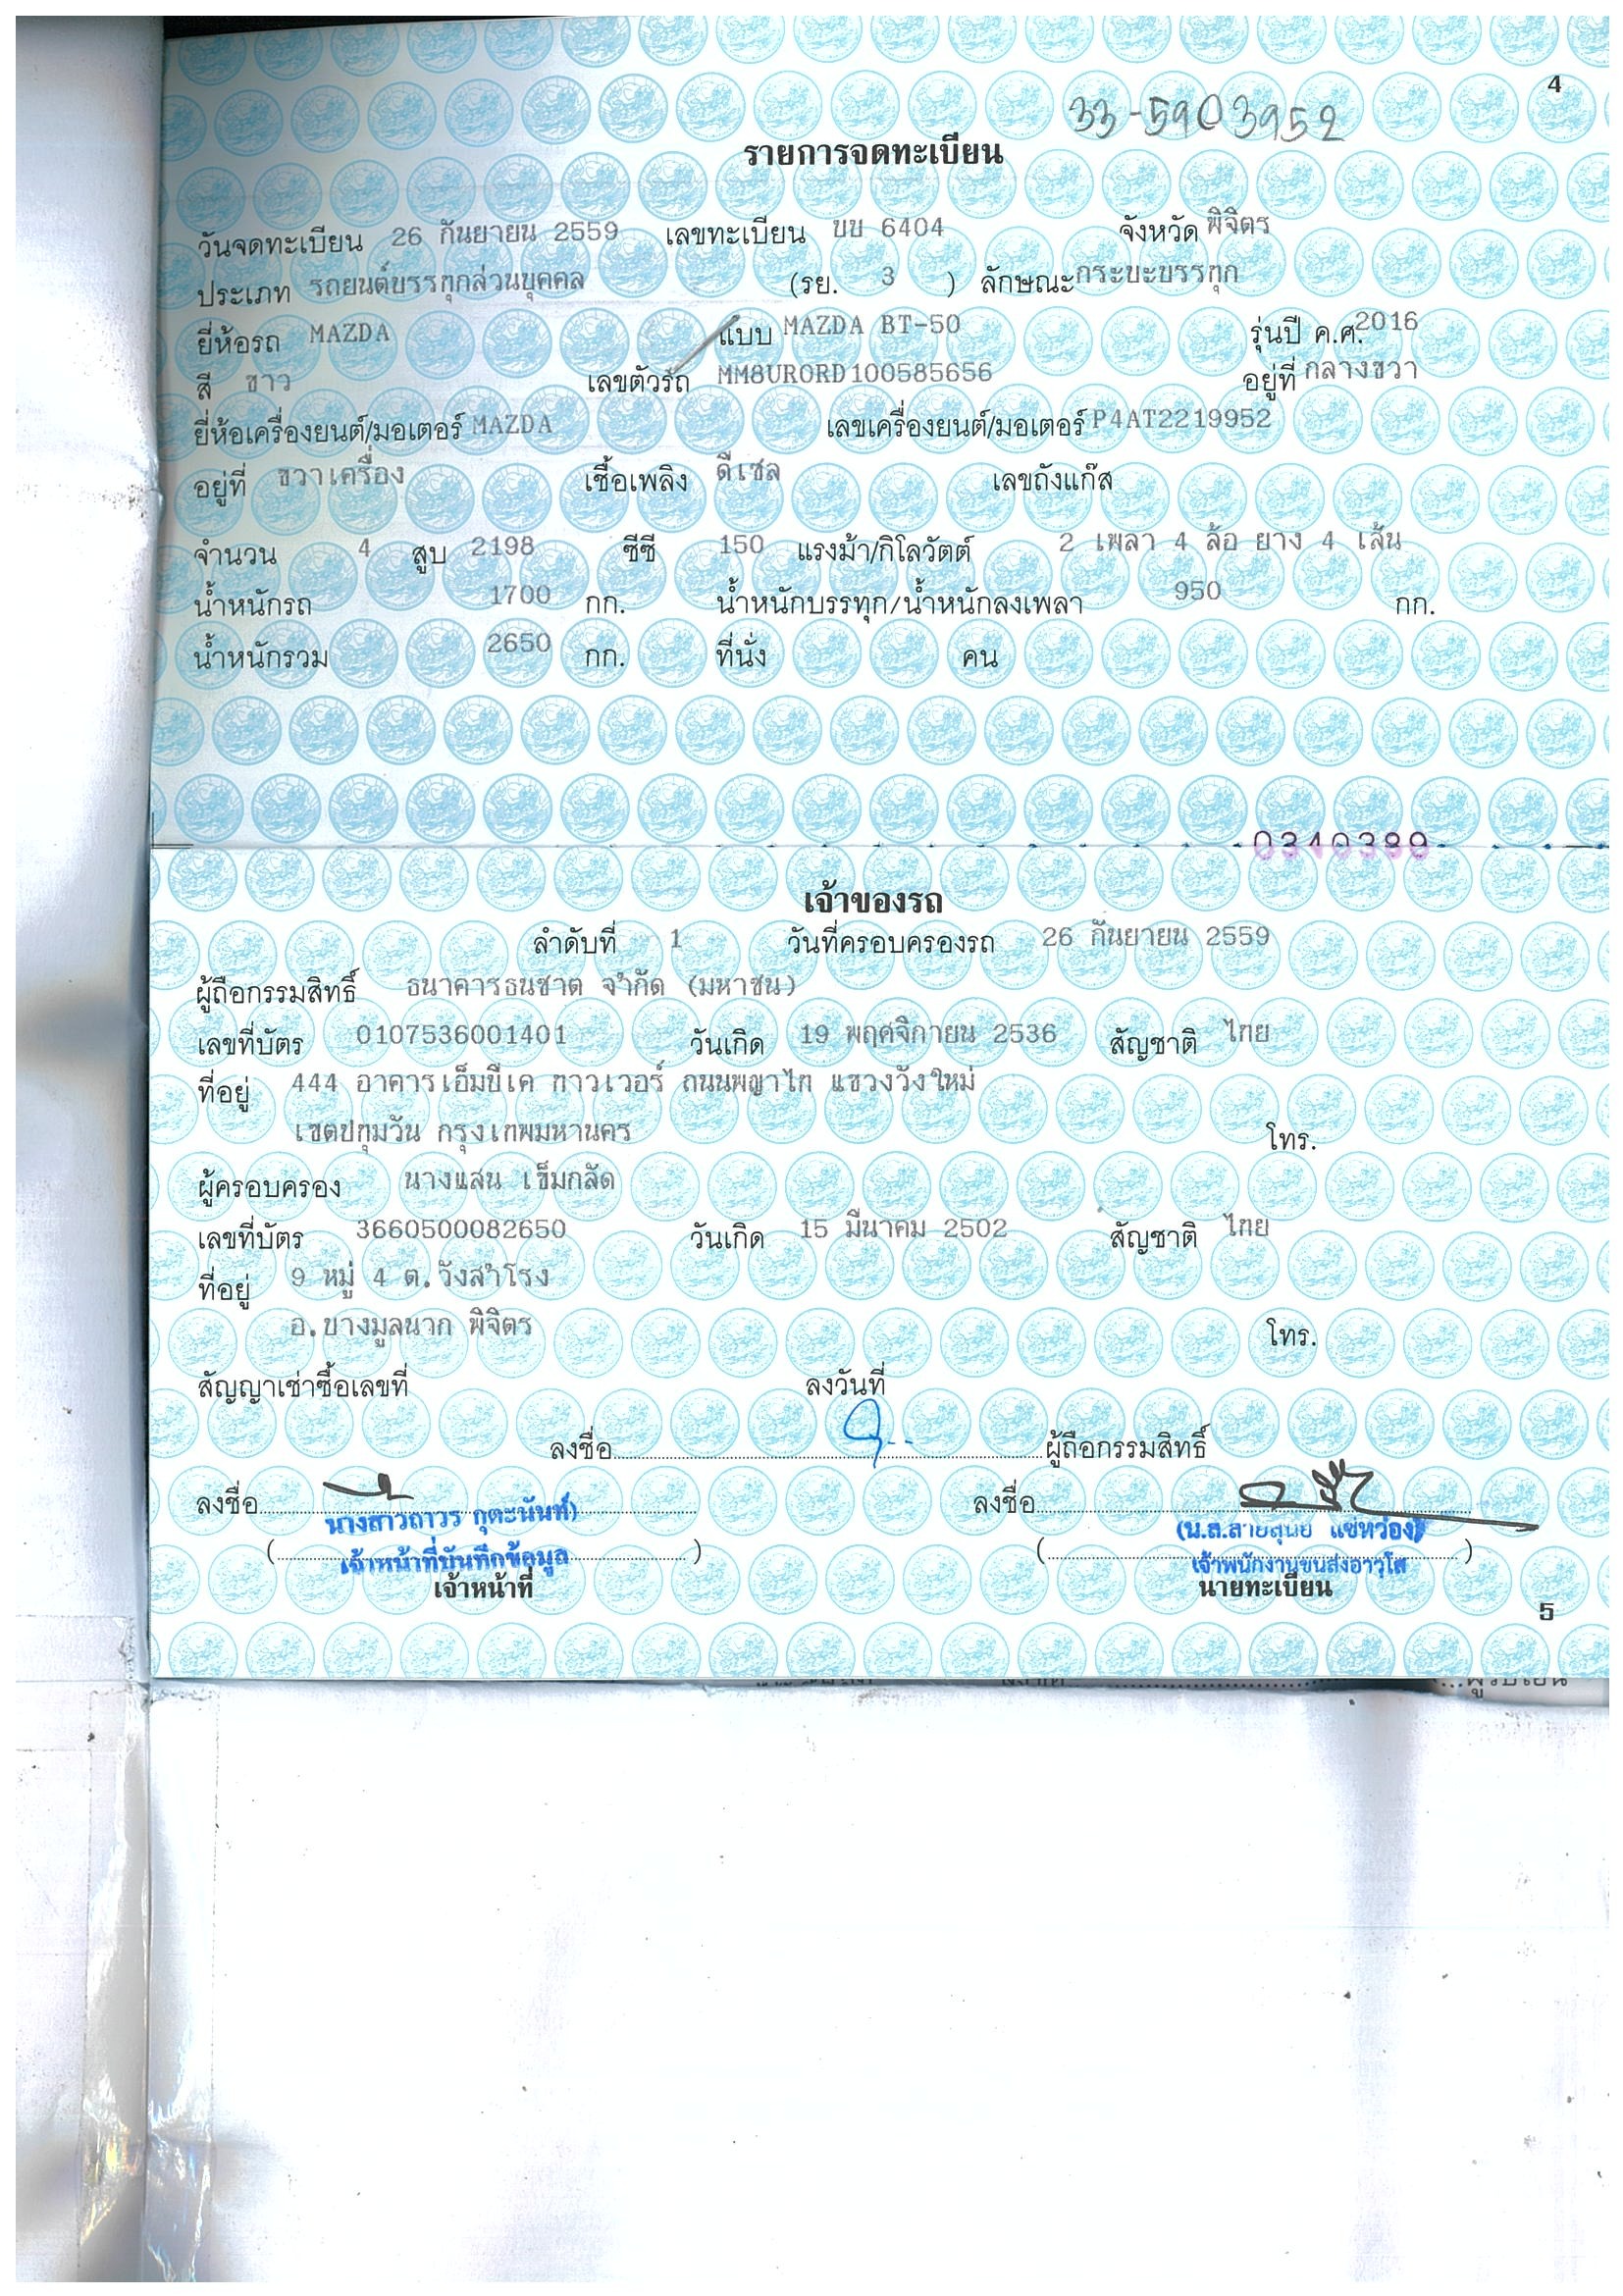 4
33-5903952
รายการจดทะเบียน
วันจดทะเบียน 26 กันยายน 2559 เลขทะเบียน บบ 6404 จังหวัด พิจิตร
ประเภท รถยนต์บรรทุกส่วนบุคคล (รย. 3 ) ลักษณะ กระบะบรรทุก
ยี่ห้อรถ MAZDA แบบ MAZDA BT-50 รุ่นปี ค.ศ. 2016
สี ขาว เลขตัวรถ MM8URORD100585656 อยู่ที่ กลางขวา
ยี่ห้อเครื่องยนต์/มอเตอร์ MAZDA เลขเครื่องยนต์/มอเตอร์ P4AT2219952
อยู่ที่ ขวาเครื่อง เชื้อเพลิง ดีเซล เลขถังแก๊ส
จำนวน 4 สูบ 2198 ซีซี 150 แรงม้า/กิโลวัตต์ 2 เพลา 4 ล้อ ยาง 4 เส้น
น้ำหนักรถ 1700 กก. น้ำหนักบรรทุก/น้ำหนักลงเพลา 950 กก.
น้ำหนักรวม 2650 กก. ที่นั่ง คน
0340389
เจ้าของรถ
ลำดับที่ 1 วันที่ครอบครองรถ 26 กันยายน 2559
ผู้ถือกรรมสิทธิ์ ธนาคารธนชาต จำกัด (มหาชน)
เลขที่บัตร 0107536001401 วันเกิด 19 พฤศจิกายน 2536 สัญชาติ ไทย
ที่อยู่ 444 อาคารเอ็มบีเค ทาวเวอร์ ถนนพญาไท แขวงวังใหม่
เขตปทุมวัน กรุงเทพมหานคร โทร.
ผู้ครอบครอง นางแสน เข็มกลัด
เลขที่บัตร 3660500082650 วันเกิด 15 มีนาคม 2502 สัญชาติ ไทย
ที่อยู่ 9 หมู่ 4 ต.วังสำโรง
อ.บางมูลนาก พิจิตร โทร.
สัญญาเช่าซื้อเลขที่ ลงวันที่
ลงชื่อ ผู้ถือกรรมสิทธิ์
ลงชื่อ ลงชื่อ
นางสาวถาวร กุตะนันท์) (น.ส.สายสุนีย์ แซ่หว่อง)
( เจ้าหน้าที่บันทึกข้อมูล ) ( เจ้าพนักงานขนส่งอาวุโส )
เจ้าหน้าที่ นายทะเบียน
5